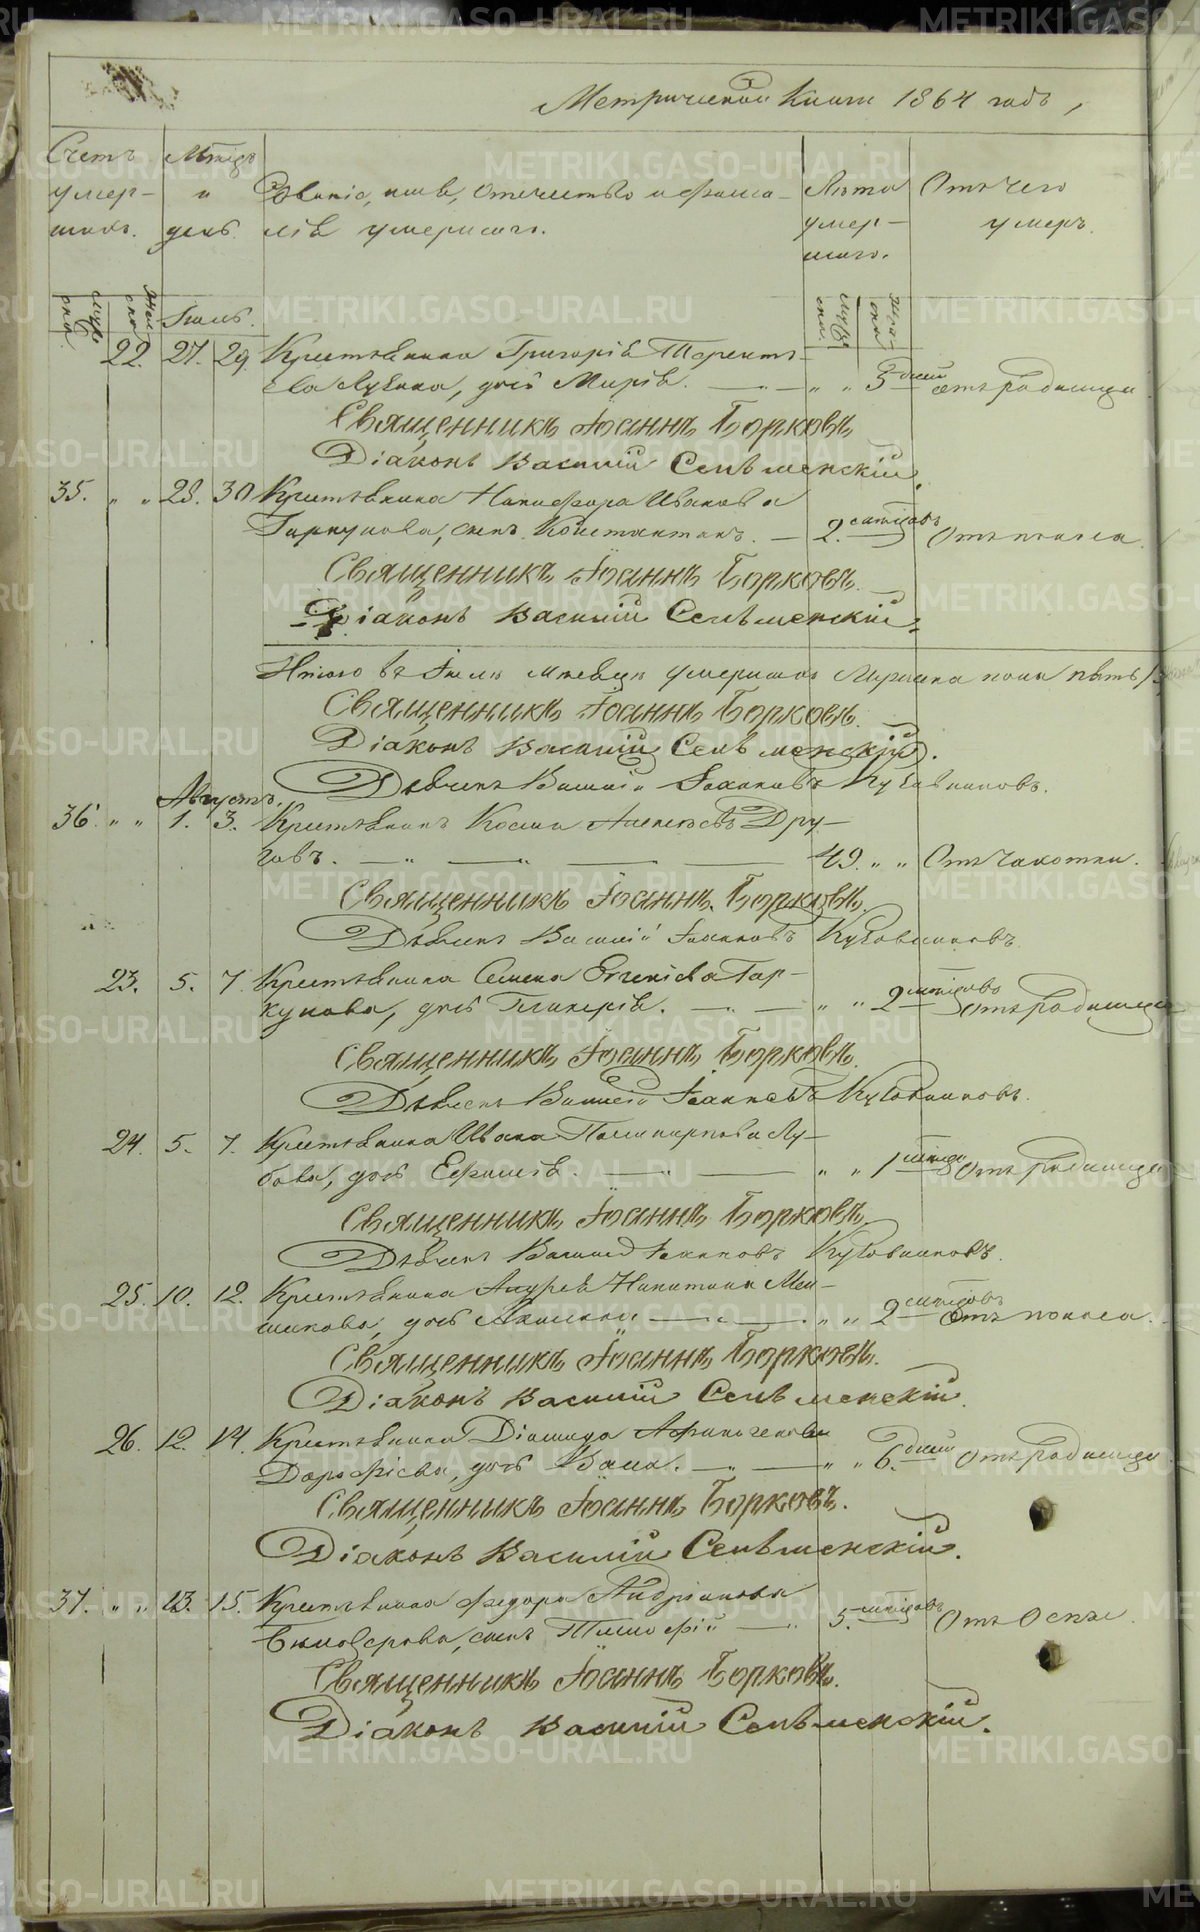 Метрической Книги 1864 года,
Счетъ умер- шихъ.
Мѣсяцъ и день.
Званіе, имя, отчество и фами-
лія умершаго.
Лѣта умер- шаго.
Отъ чего умеръ.
муже ска женска Іюль. муже ска женска
22. 27. 29. Крестьянина Григорія Теренть-
ева дочь Марія. " " 5 дней отъ родимца
Священникъ Іоаннъ Борковъ
Діаконъ Василій
35. " " 28. 30 Крестьянина Никифора Иванова
сынъ Константинъ. 2. мѣсяцовъ Отъ поноса.
Священникъ Іоаннъ Борковъ.
Діаконъ Василій
Итого въ Іюлѣ мѣсяцѣ умершихъ мужеска пола пять
Священникъ Іоаннъ Борковъ.
Діаконъ Василій
Дьячекъ Василій Іоанновъ Кузовниковъ.
Августъ.
36. " " 1. 3. Крестьянинъ Косма Алексѣевъ Дру-
говъ. 49. " " Отъ чахотки.
Священникъ Іоаннъ Борковъ.
Дьячекъ Василій Іоанновъ Кузовниковъ
23. 5. 7. Крестьянина Семена Евгеніева Гор-
кунова, дочь Гликерія. " " 2 мѣсяцовъ отъ родимца
Священникъ Іоаннъ Борковъ.
Дьячекъ Василій Іоанновъ Кузовниковъ.
24. 5. 7. Крестьянина Ивана Поликарпова Лу-
бова, дочь Ефимія. " " 1 мѣсяца Отъ родимца
Священникъ Іоаннъ Борковъ
Дьячекъ Василій Іоанновъ Кузовниковъ.
25. 10. 12. Крестьянина Андрея Никитина Мен-
шикова, дочь Акилина " " 2 мѣсяцовъ Отъ поноса.
Священникъ Іоаннъ Борковъ.
Діаконъ Василій
26. 12. 14. Крестьянина Діомида Афиногенова
Дорофѣева, дочь " " 6. дней Отъ родимца
Священникъ Іоаннъ Борковъ.
Діаконъ Василій
37. " " 13. 15. Крестьянина Федора Андріанова
Бѣлозерова, сынъ Тимофій 5. мѣсяцовъ Отъ Оспы.
Священникъ Іоаннъ Борковъ.
Діаконъ Василій
METRIKI.GASO-URAL.RU